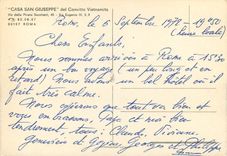 "CASA SAN GIUSEPPE" del Convitto Vietnamita
00157 ROMA
Rome, le 5 Septembre 1978 - 19h50
(heure locale)
Chers Enfants,
Nous sommes arrivés à Rome à 15h30
après un bon voyage (un peu lent et en
retard) Nous avons un bel hôtel où il
fait très calme.
Nous espérons que tout va bien et
vous embrassons, Papa et moi bien
tendrement tous : Claude, Viviane,
Geneviève et Georges et Philippe